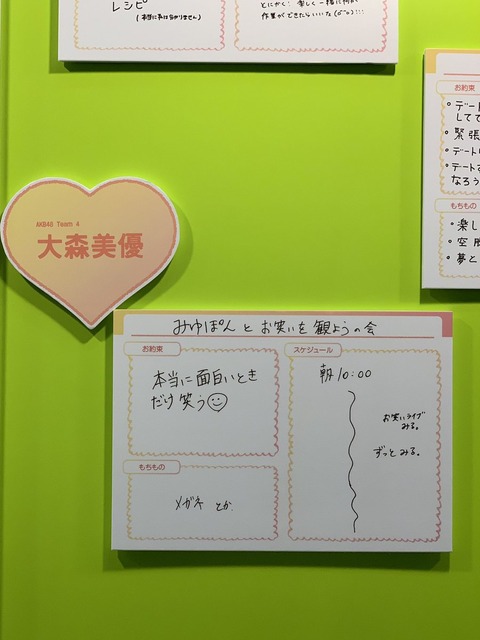 レシピ
(本当に私は分かりません)
とにかく！楽しく一緒に何か
作業ができたらいいな
お約束
・デート
してて
・緊張
・デート
・デート
なろう
もちもの
・楽し
・空
・夢と
AKB48 Team 4
大森美優
みゆぽんとお笑いを観ようの会
お約束
本当に面白いとき
だけ笑う
もちもの
メガネ とか
スケジュール
朝10:00
お笑いライブ
みる。
ずっとみる。